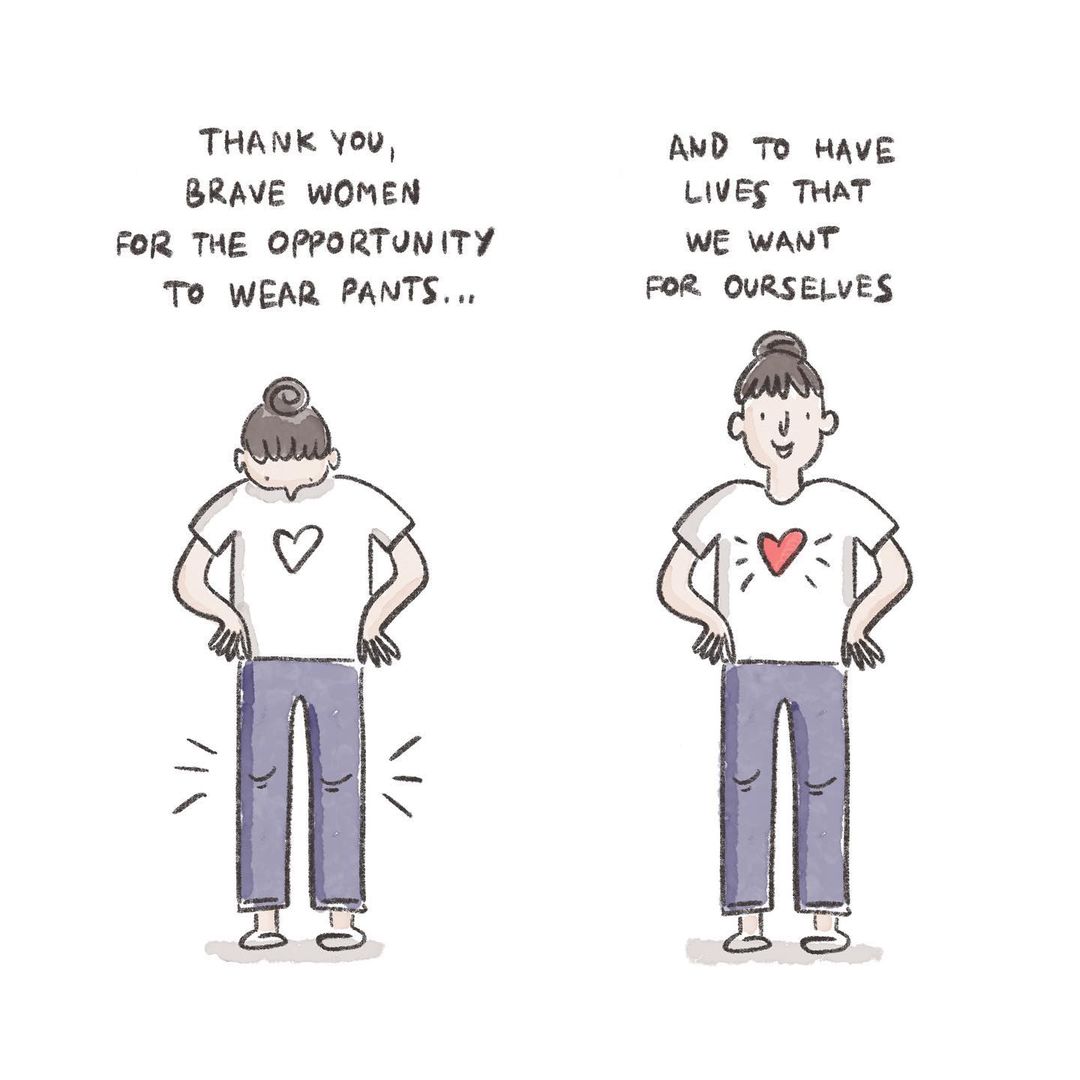 THANK YOU,
BRAVE WOMEN
FOR THE OPPORTUNITY
TO WEAR PANTS...
AND TO HAVE
LIVES THAT
WE WANT
FOR OURSELVES